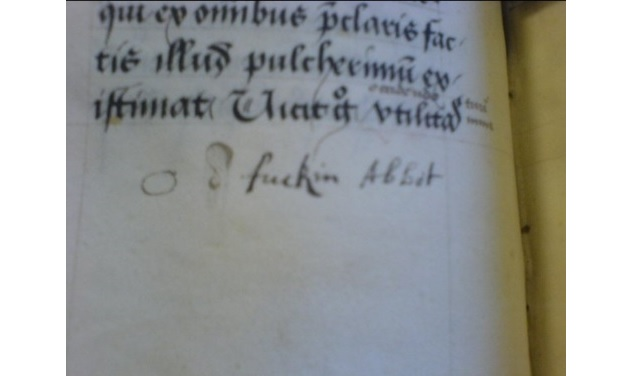 qui ex omnibus p̄claris fac-
tis illud pulcherimū ex-
istimat Uicit
O d fuckin Abbot